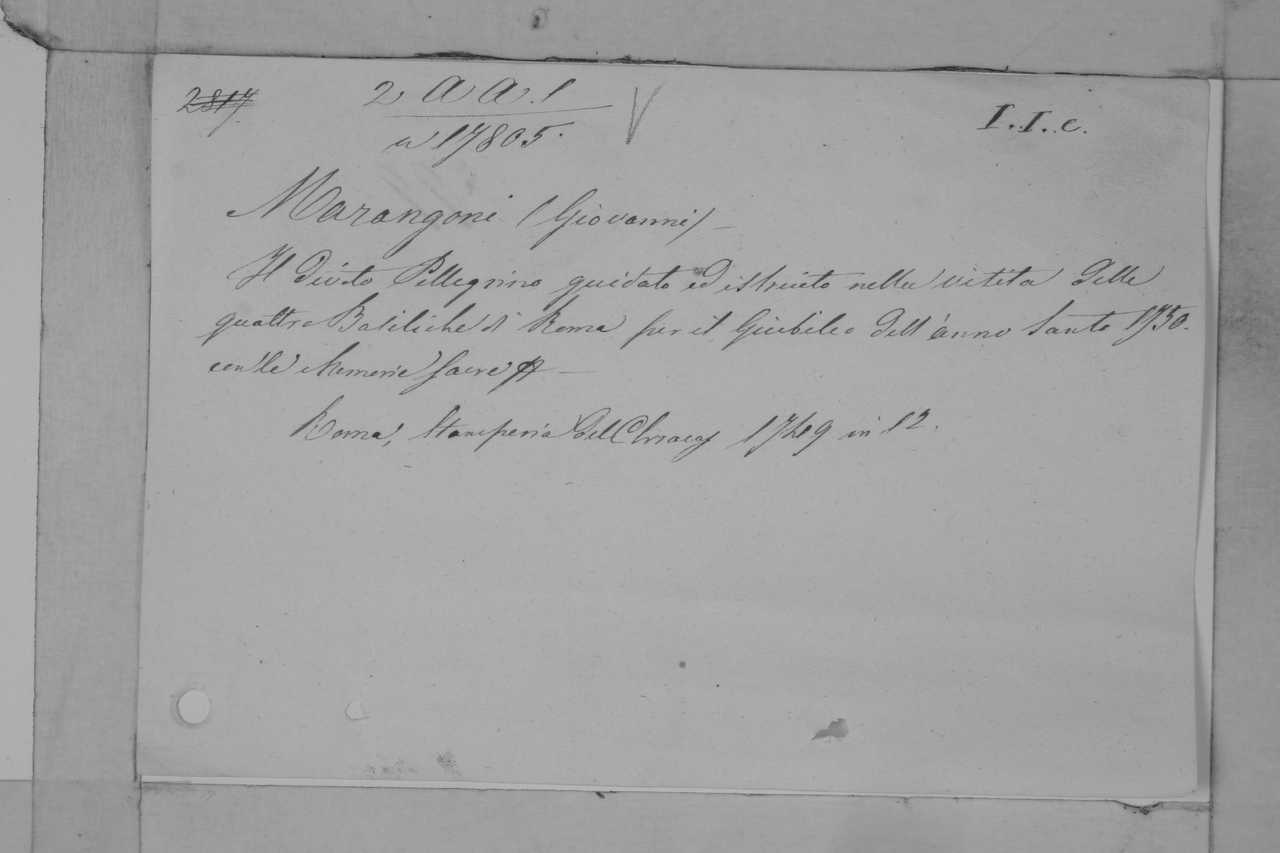 2817
2 a a. 1 V
n 17805.
I. I. c.
Marangoni (Giovanni) –
Il Divoto Pellegrino guidato ed istruito nella visita delle
quattro Basiliche di Roma per il Giubileo dell'anno Santo 1750.
con le Memorie sacre &c –
Roma, Stamperia del Chracas 1749 in 12.